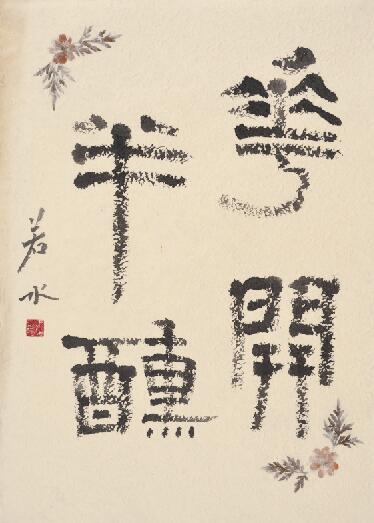 華開
半醺
若水